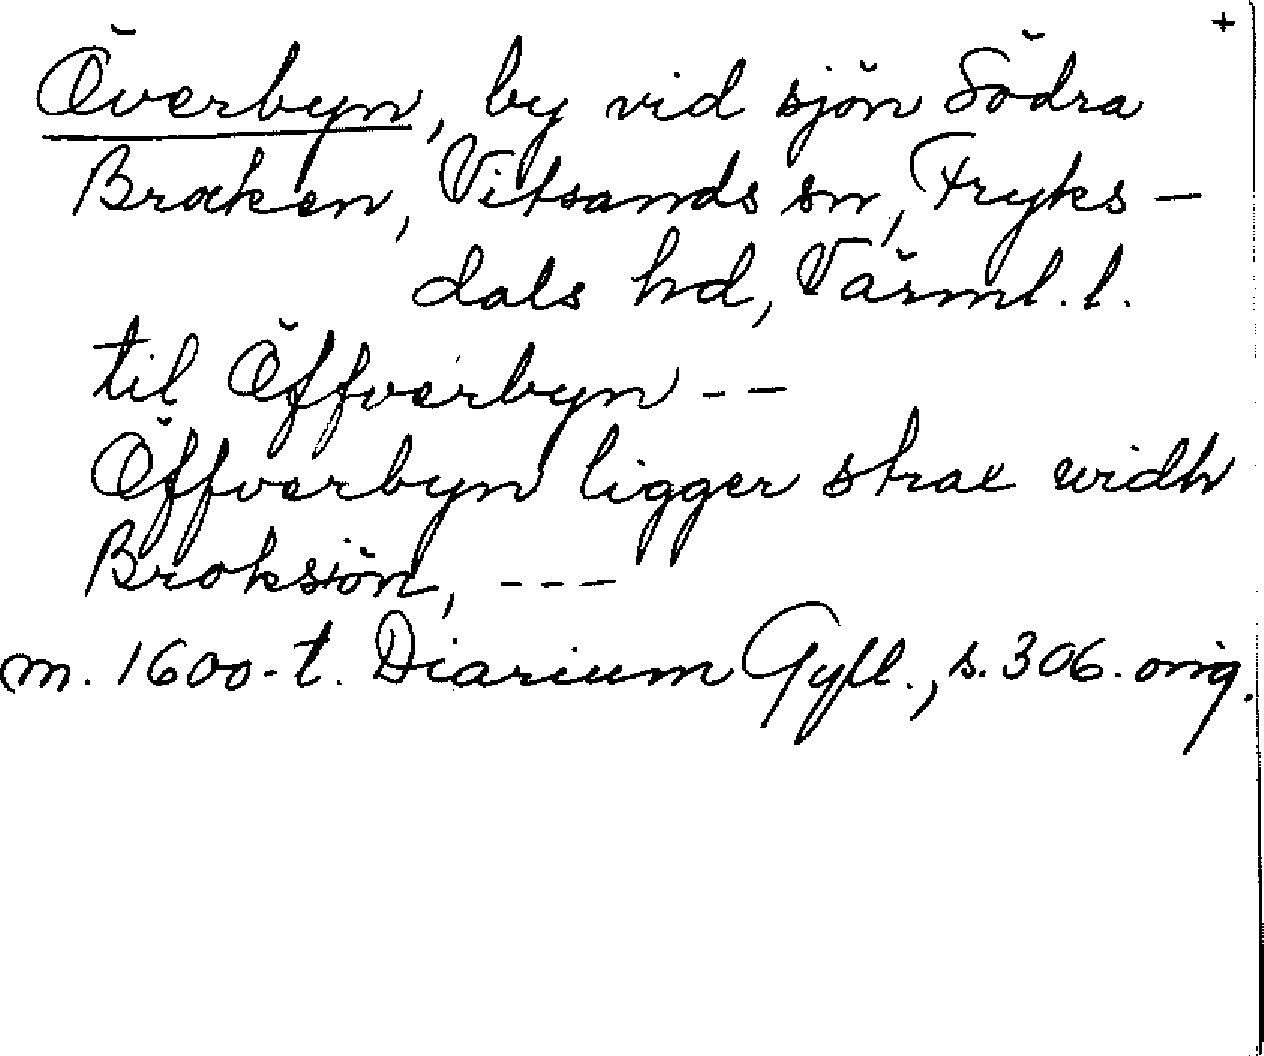 +
Överbyn, by vid sjön Södra
Braken, Vitsands sn, Fryks-
dals hd, Värml. l.
til Öffverbyn - -
Öffverbyn ligger strax widh
Broksiön, - - -
m. 1600-t. Diarium Gyll., s. 306. orig.